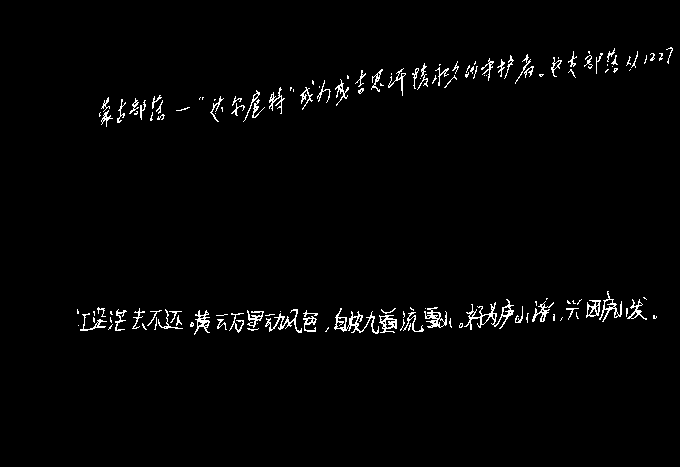 蒙古部落一“达尔扈特”成为成吉思汗陵永久的守护者。这支部落从1227
江茫茫去不还。黄云万里动风色，白波九道流雪山。好为庐山谣，兴因庐山发。